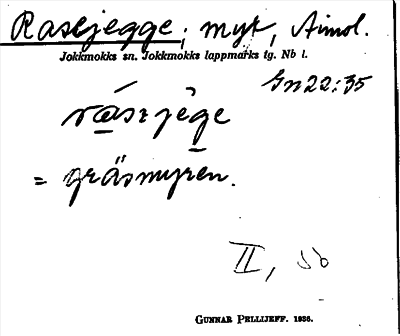 Rasejegge; myr, Aimol.
Jokkmokks sn. Jokkmokks lappmarks tg. Nb l.
Gn22:35
rásɛjège
= gräsmyren.
II, Sb
GUNNAR PELLIJEFF. 1936.